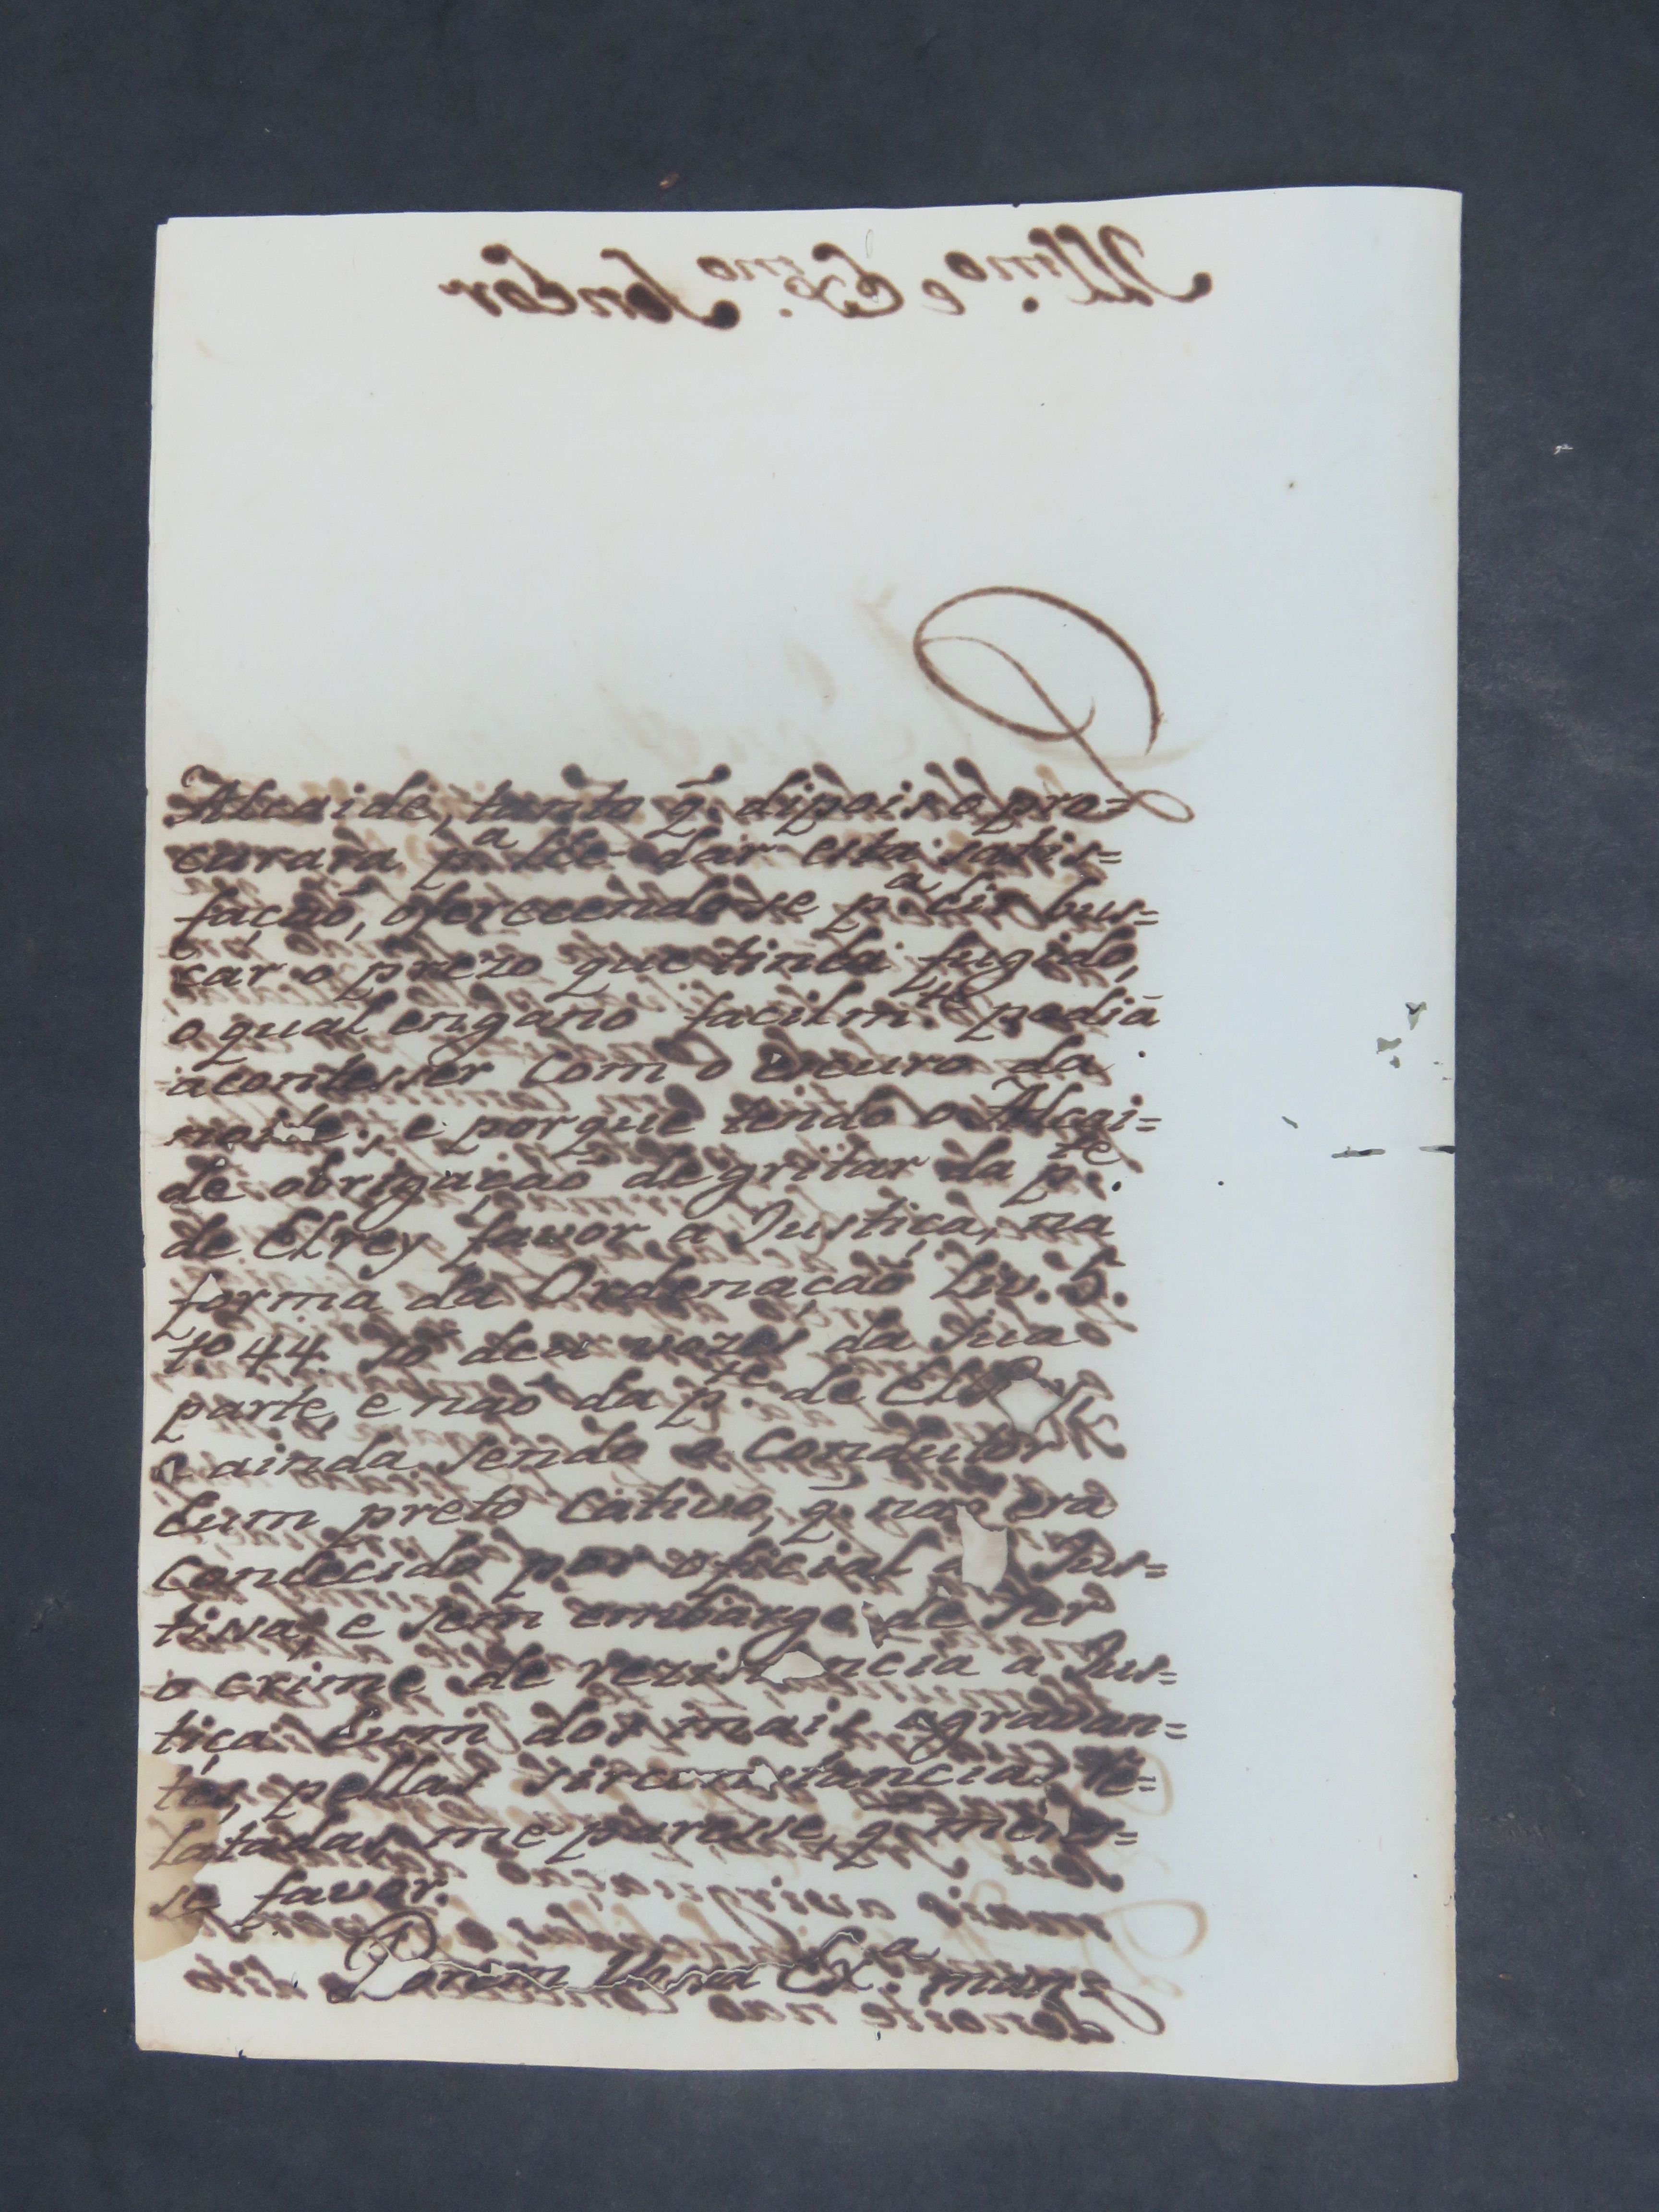 Alcaide, tanto q̃. dipois o pro=
curara p.ª lhe dar esta satis=
façaõ, oferecendose p.ª hir bus=
car o prezo que tinha fugido,
o qual engano facilm.te podia
acontesser com o escuro da
noite; e porque tendo o Alcai=
de obrigaçaõ de gritar da p.te
de ElRey favor a Justiça, na
forma da Ordenaçaõ Liv. 5.
t.º 44. só deu vozes da sua
parte, e naõ da p.te de ElRey,
e ainda sendo o Condutor
hum preto Cativo, q̃. naõ era
conhecido por oficial Jus=
tissa; e sem embargo de ser
o crime de rezistencia a Jus=
tiça hum dos mais agravan=
tes, pellas sircunstancias re=
latadas, me paresse, q̃. mere=
se favor.
Porem Vossa Ex.ª man=